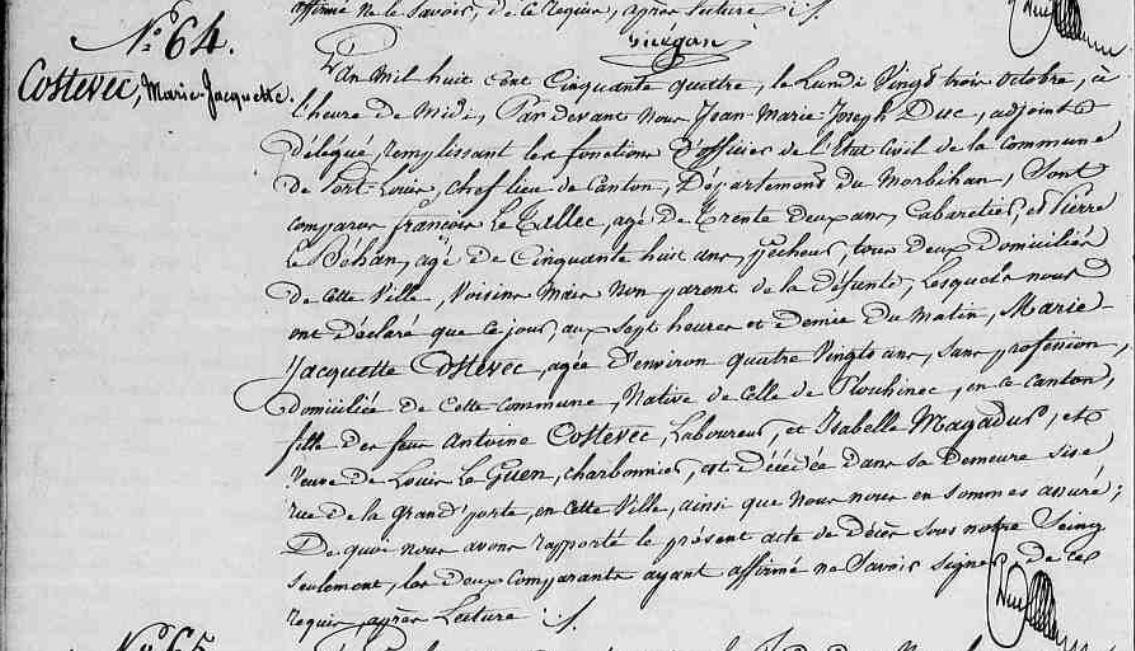 affirmé ne le Savoir, de ce Requis, après Lecture ./.
N.º 64.
Costevec, Marie-Jacquette.
L'An Mil huit cent Cinquante quatre, le Lundi Vingt trois octobre, à
l'heure de Midi, Par devant Nous Jean-Marie-Joseph Duc, adjoint
délégué, remplissant les fonctions d'officier de l'Etat Civil de la Commune
de Port-Louis, chef lieu de Canton, Département du Morbihan, Sont
comparus françois Le Tallec, agé de Trente deux ans, Cabaretier, et Pierre
Le Béhan, agé de Cinquante huit ans, pêcheur, tous deux Domiciliés
de cette Ville, Voisins Mais Non parent de la Défunte, Lesquels nous
ont Déclaré que ce jour, aux Sept heures et Demie Du Matin, Marie-
Jacquette Costevec, agée d'environ quatre Vingts ans, Sans profession,
domiciliée de Cette Commune, Native de Celle de Plouhinec, en ce Canton,
fille des feux Antoine Costevec, Laboureur, et Isabelle Magadur, et
Veuve de Louis Le Guen, charbonnier, est Décédée Dans sa Demeure sise
rue de la Grand'porte, en Cette Ville, ainsi que Nous nous en Sommes assuré;
De quoi nous avons rapporté le présent acte de Décès sous notre Seing
Seulement, les Deux Comparants ayant affirmé ne Savoir signer de ce
requis, après Lecture ./.
Duc
N.º 65.